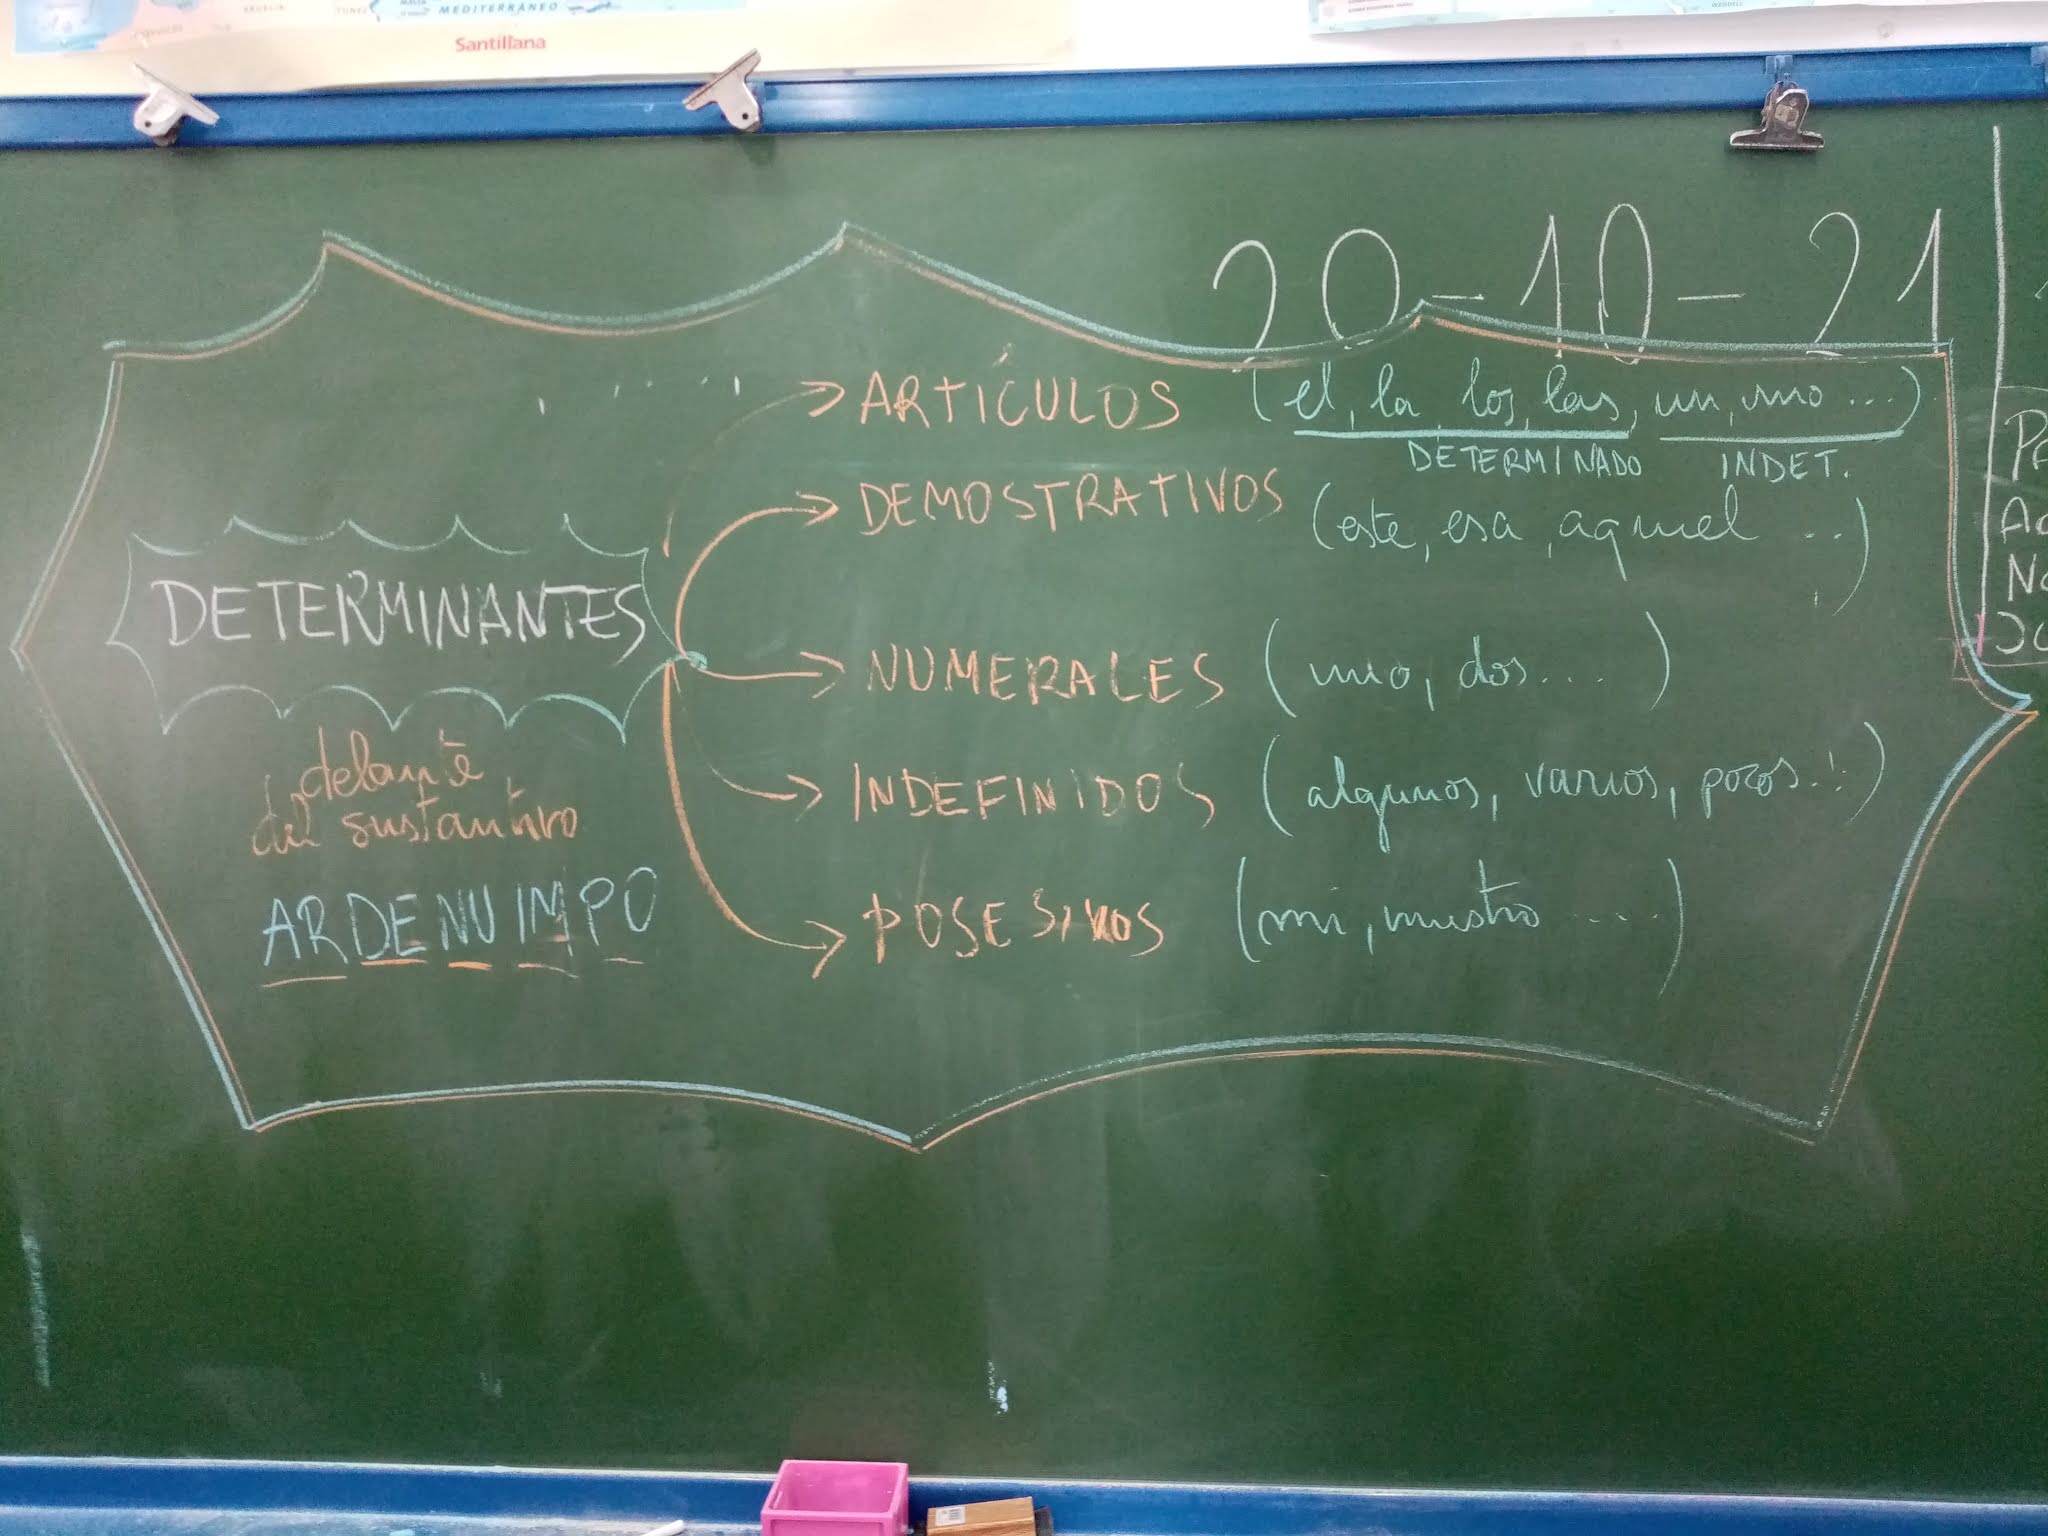 MEDITERRÁNEO
Santillana
20-10-21
ARTÍCULOS (el, la los, las, un, uno ...)
DETERMINADO INDET.
DEMOSTRATIVOS (este, esa, aquel ...)
DETERMINANTES
NUMERALES (uno, dos ...)
delante
del sustantivo
INDEFINIDOS (algunos, varios, pocos...)
ARDENUIMPO
POSESIVOS (mi, nuestro ....)